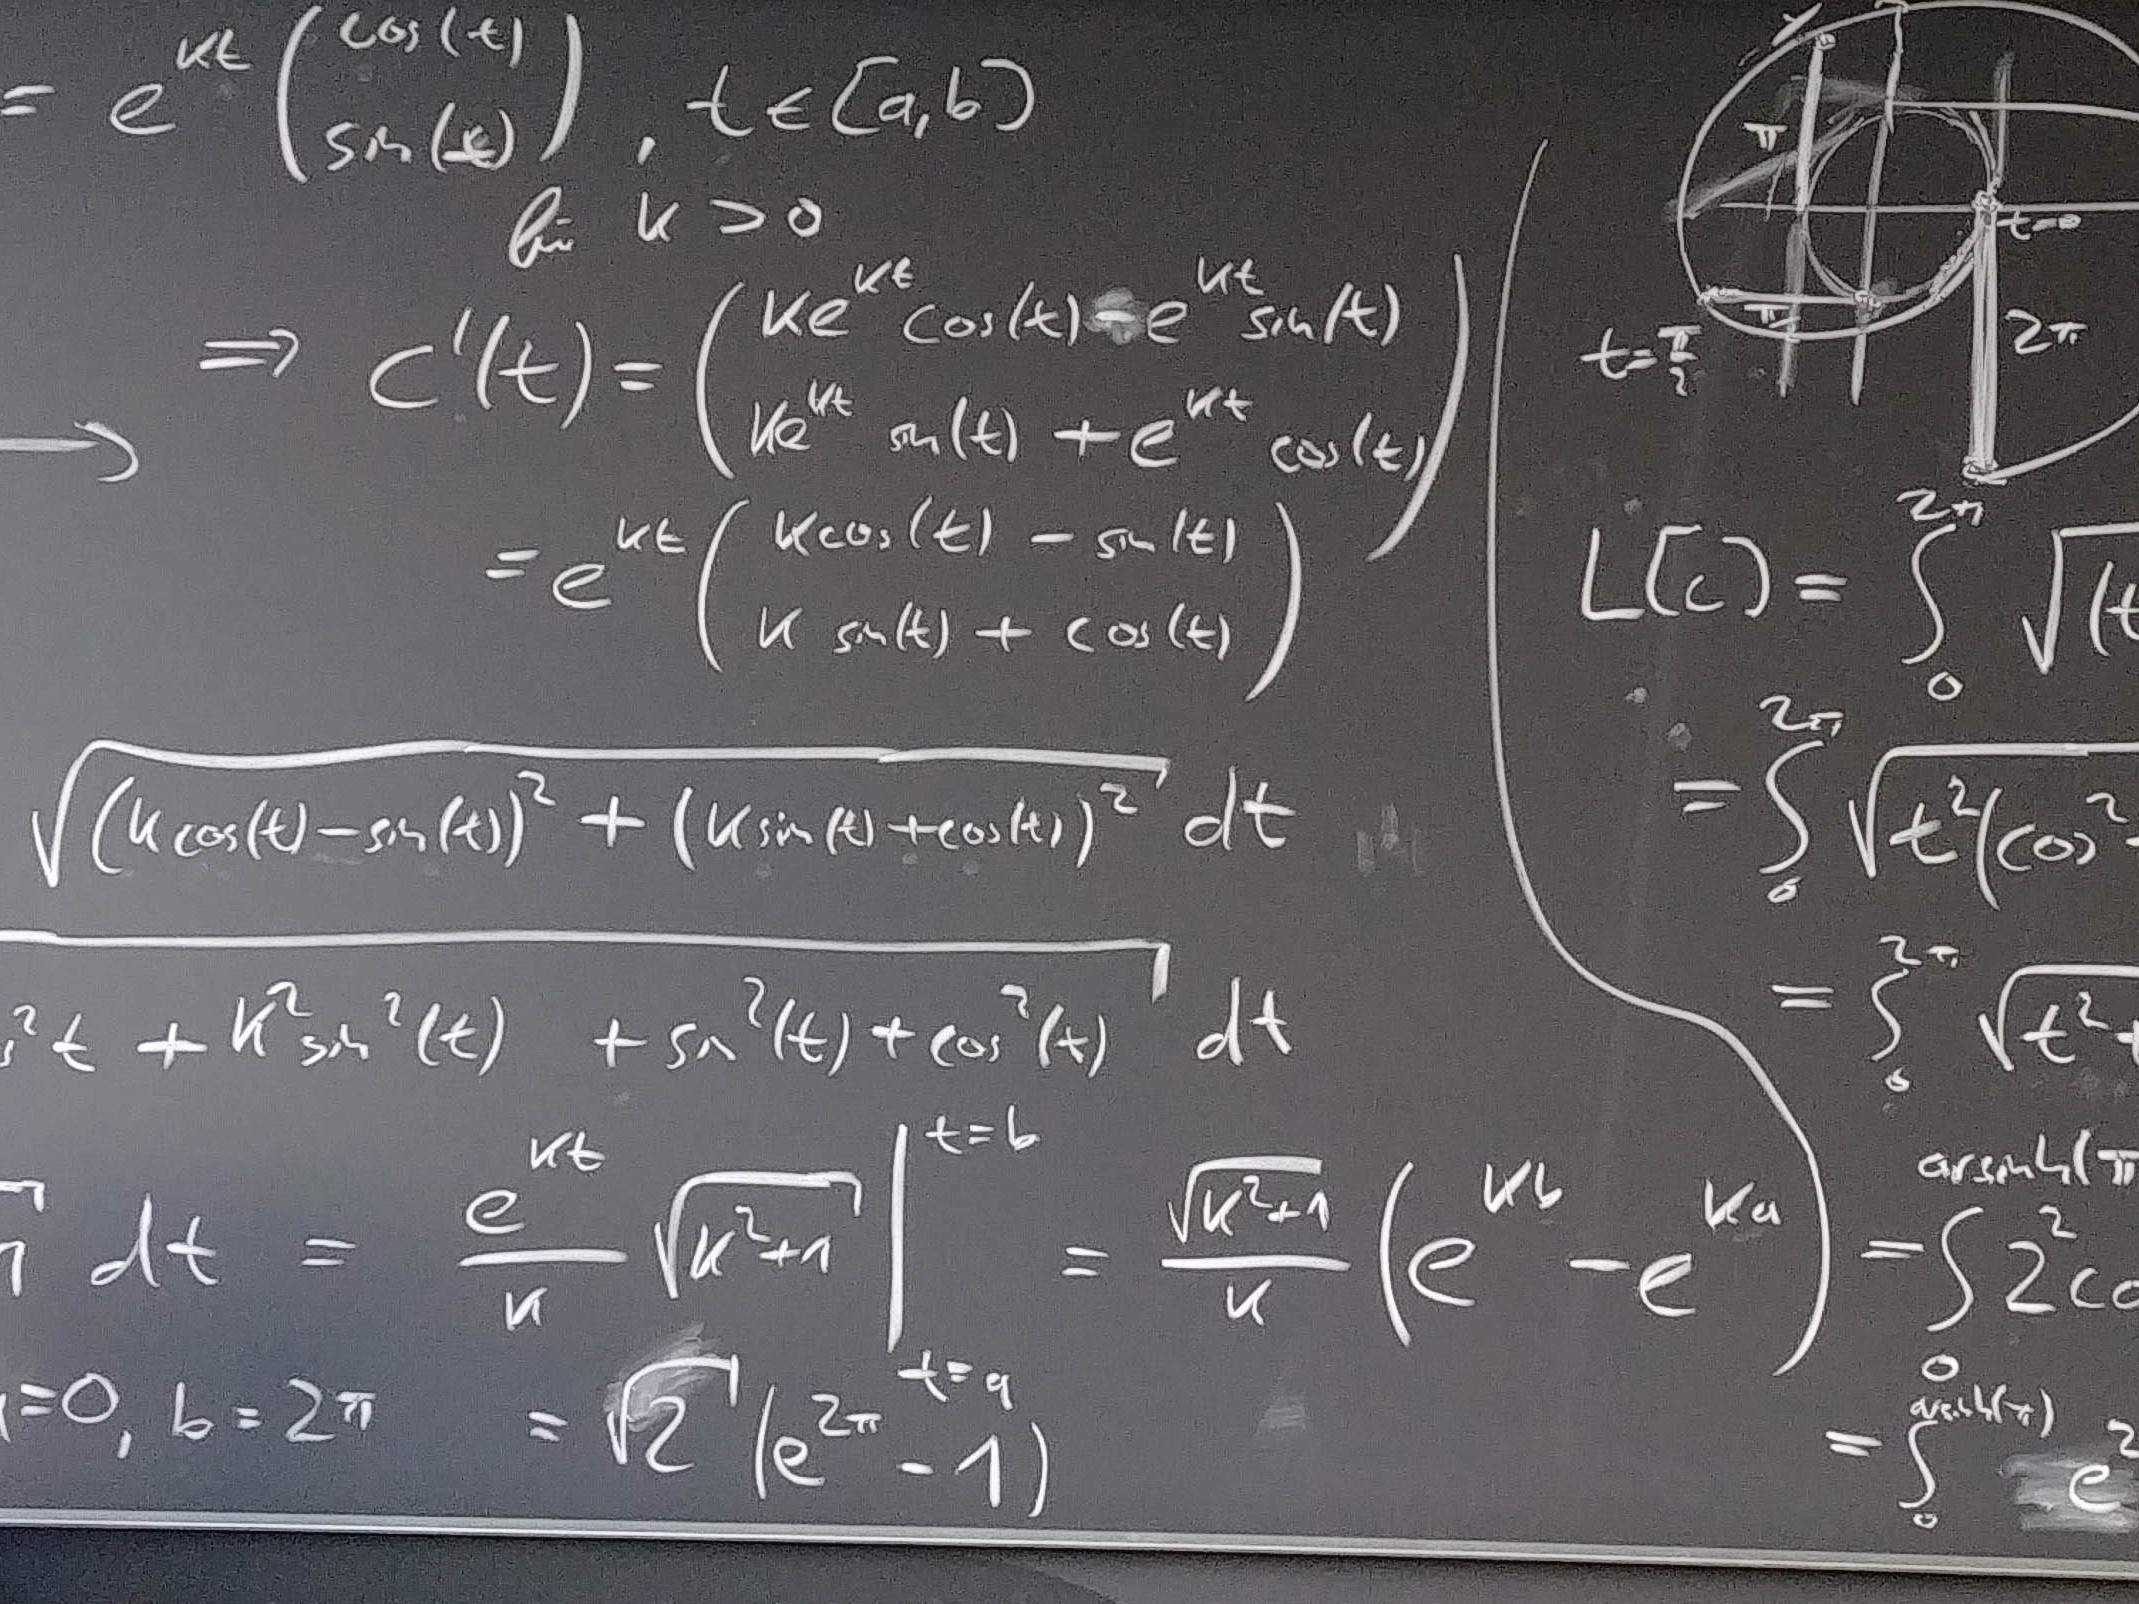 = e^{kt} ( cos(t) sin(t) ) , t ∈ [a,b]
für k > 0
⇒ c'(t) = ( ke^{kt} cos(t) - e^{kt} sin(t)
ke^{kt} sin(t) + e^{kt} cos(t) )
→
= e^{kt} ( k cos(t) - sin(t)
k sin(t) + cos(t) )
√((k cos(t) - sin(t))² + (k sin(t) + cos(t))²) dt
s²t + k² sin²(t) + sin²(t) + cos²(t) dt
1 dt = e^{kt}/k √(k²+1) |_{t=a}^{t=b} = √(k²+1)/k (e^{kb} - e^{ka})
=0, b = 2π = √2 (e^{2π} - 1)
π
t=0
π
t = π/2
2π
L[c] = ∫_0^{2π} √(t
= ∫_0^{2π} √t²(cos²
= ∫_0^{2π} √t² +
= ∫_0^{arsinh(π} 2² co
= ∫_0^{arsinh(π)} e²